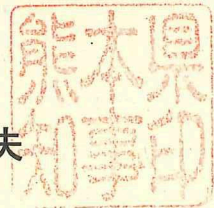 夫
熊本県
知事印